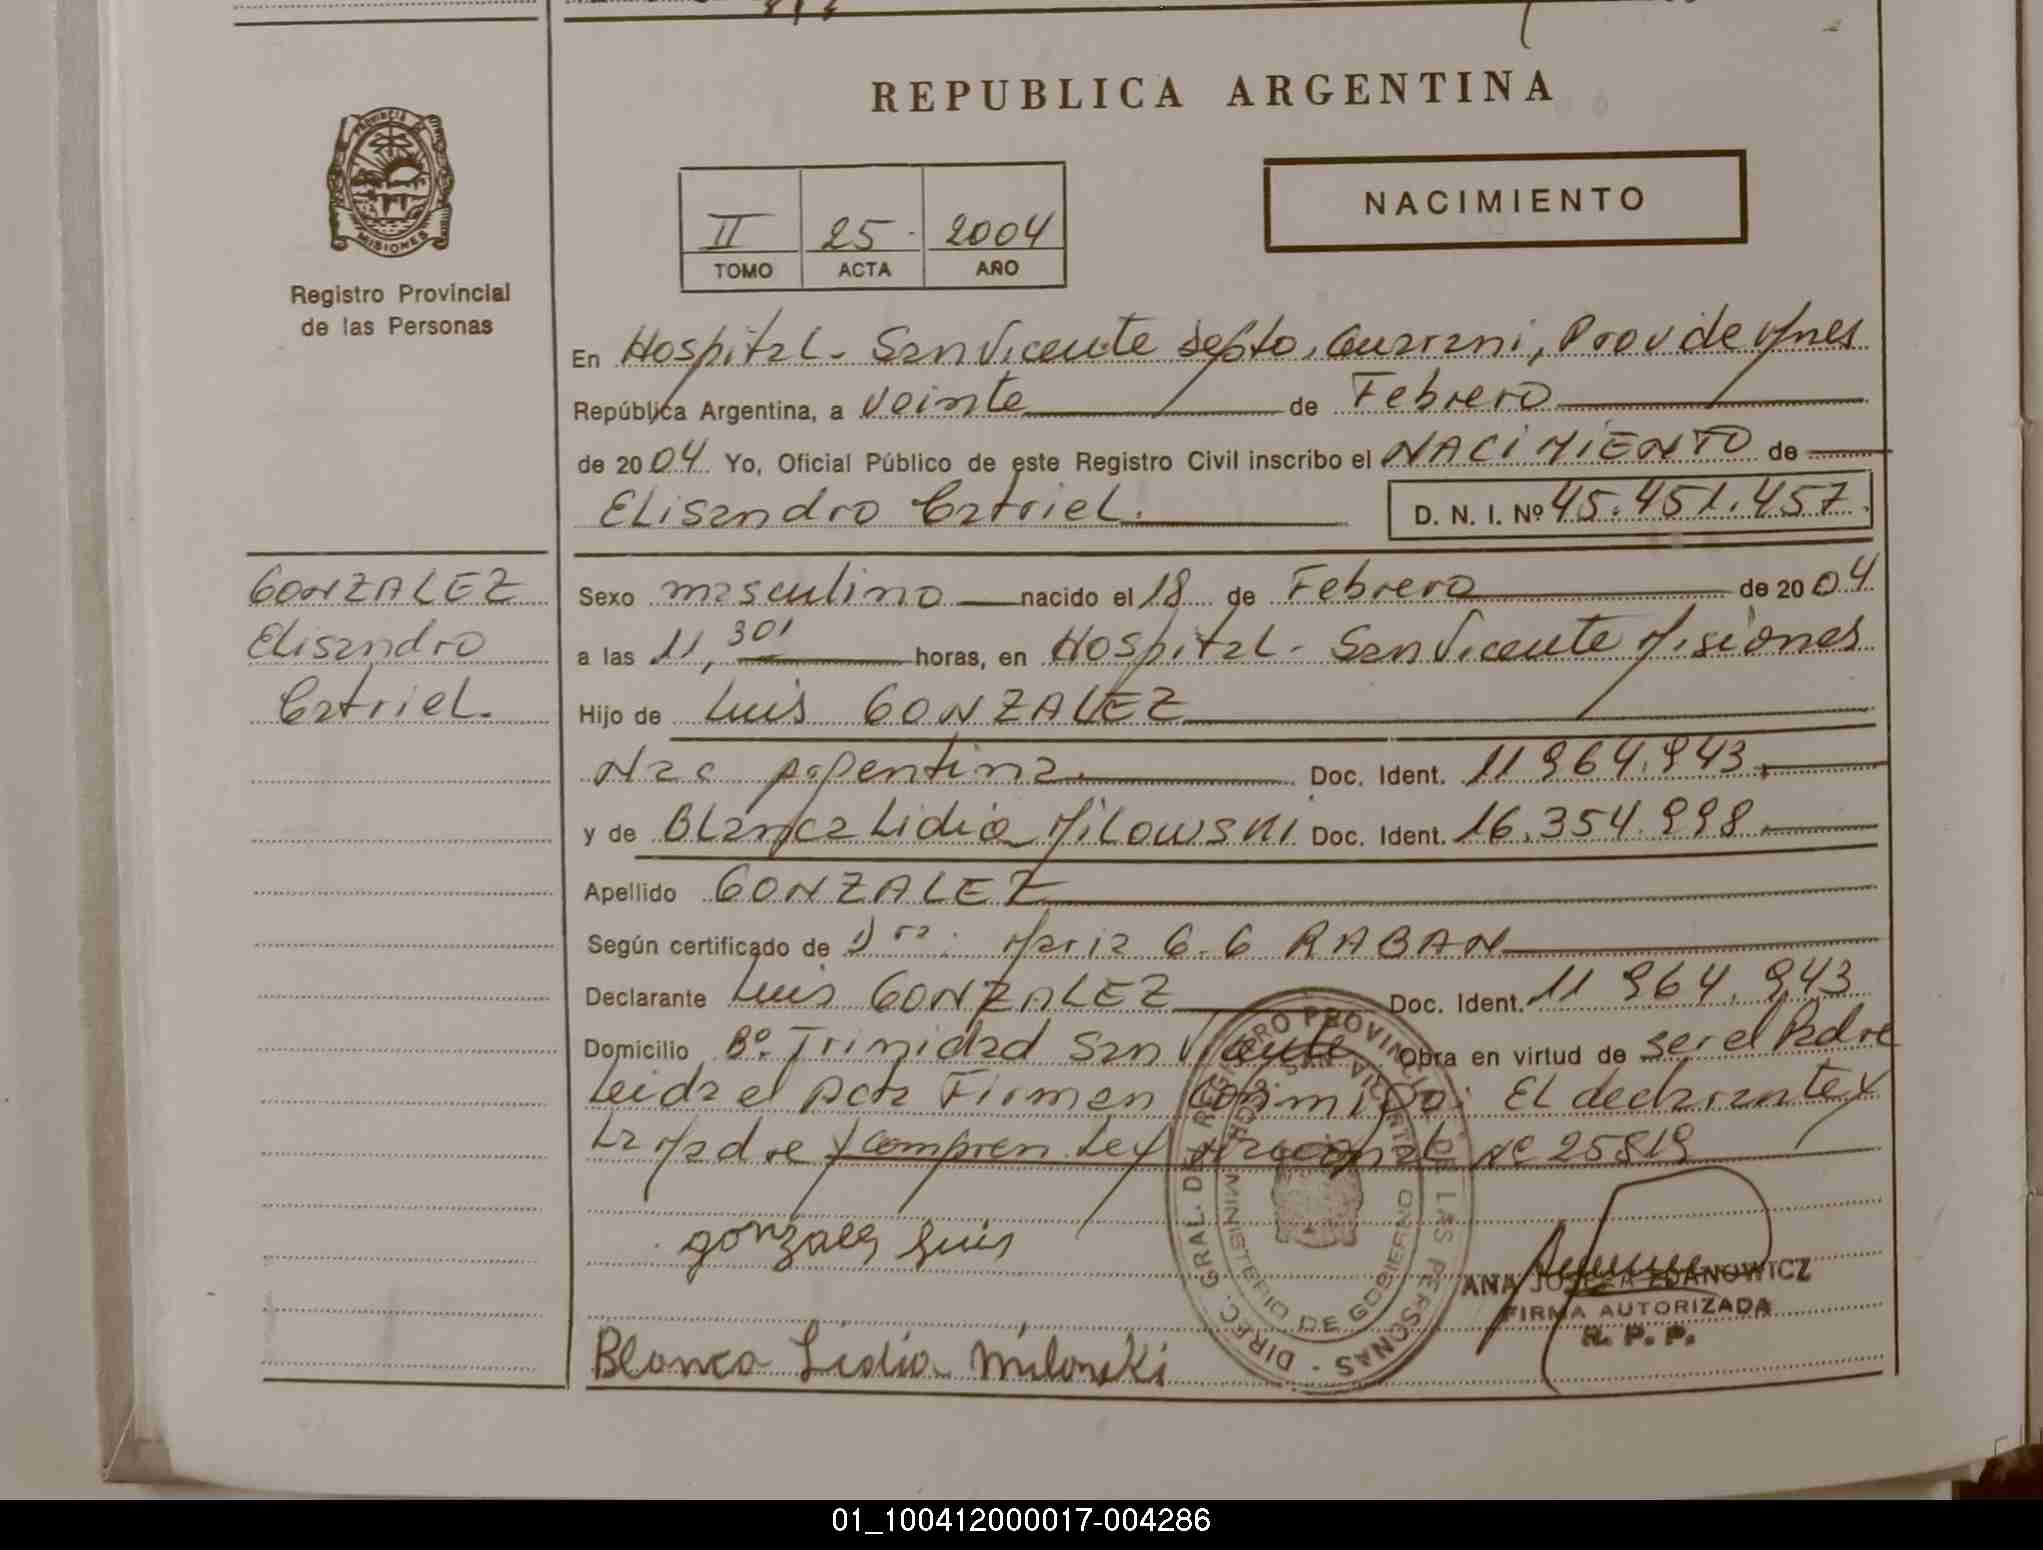 REPUBLICA ARGENTINA
PROVINCIA DE
MISIONES
Registro Provincial
de las Personas
NACIMIENTO
II 25 2004
TOMO ACTA AÑO
En Hospital. San Vicente depto, Guarani, Prov de Mnes
República Argentina, a veinte de Febrero
de 2004 Yo, Oficial Público de este Registro Civil inscribo el NACIMIENTO de
Elisandro Catriel. D. N. I. Nº 45.451.457.
GONZALEZ
Elisandro
Catriel.
Sexo masculino nacido el 18 de Febrero de 2004
a las 11,30' horas, en Hospital. San Vicente Misiones
Hijo de Luis GONZALEZ
Nac Argentina. Doc. Ident. 11 964.943
y de Blanca Lidia Milowski Doc. Ident. 16.354.998
Apellido GONZALEZ
Según certificado de Dra. Maria G. G RABAN
Declarante Luis GONZALEZ Doc. Ident. 11 964.943
Domicilio Bº. Trinidad San Vicente Obra en virtud de ser el Padre
Leida el Acta Firman conmigo: El declarante y
La Madre y compren Ley Nacional Nº 25819
gonzales Luis
Blanca Lidia Milowski
DIREC. GRAL. DEL REGISTRO PROVINCIAL DE LAS PERSONAS
MINISTERIO DE GOBIERNO
ANA JOSEFA ZDANOWICZ
FIRMA AUTORIZADA
R. P. P.
01_100412000017-004286